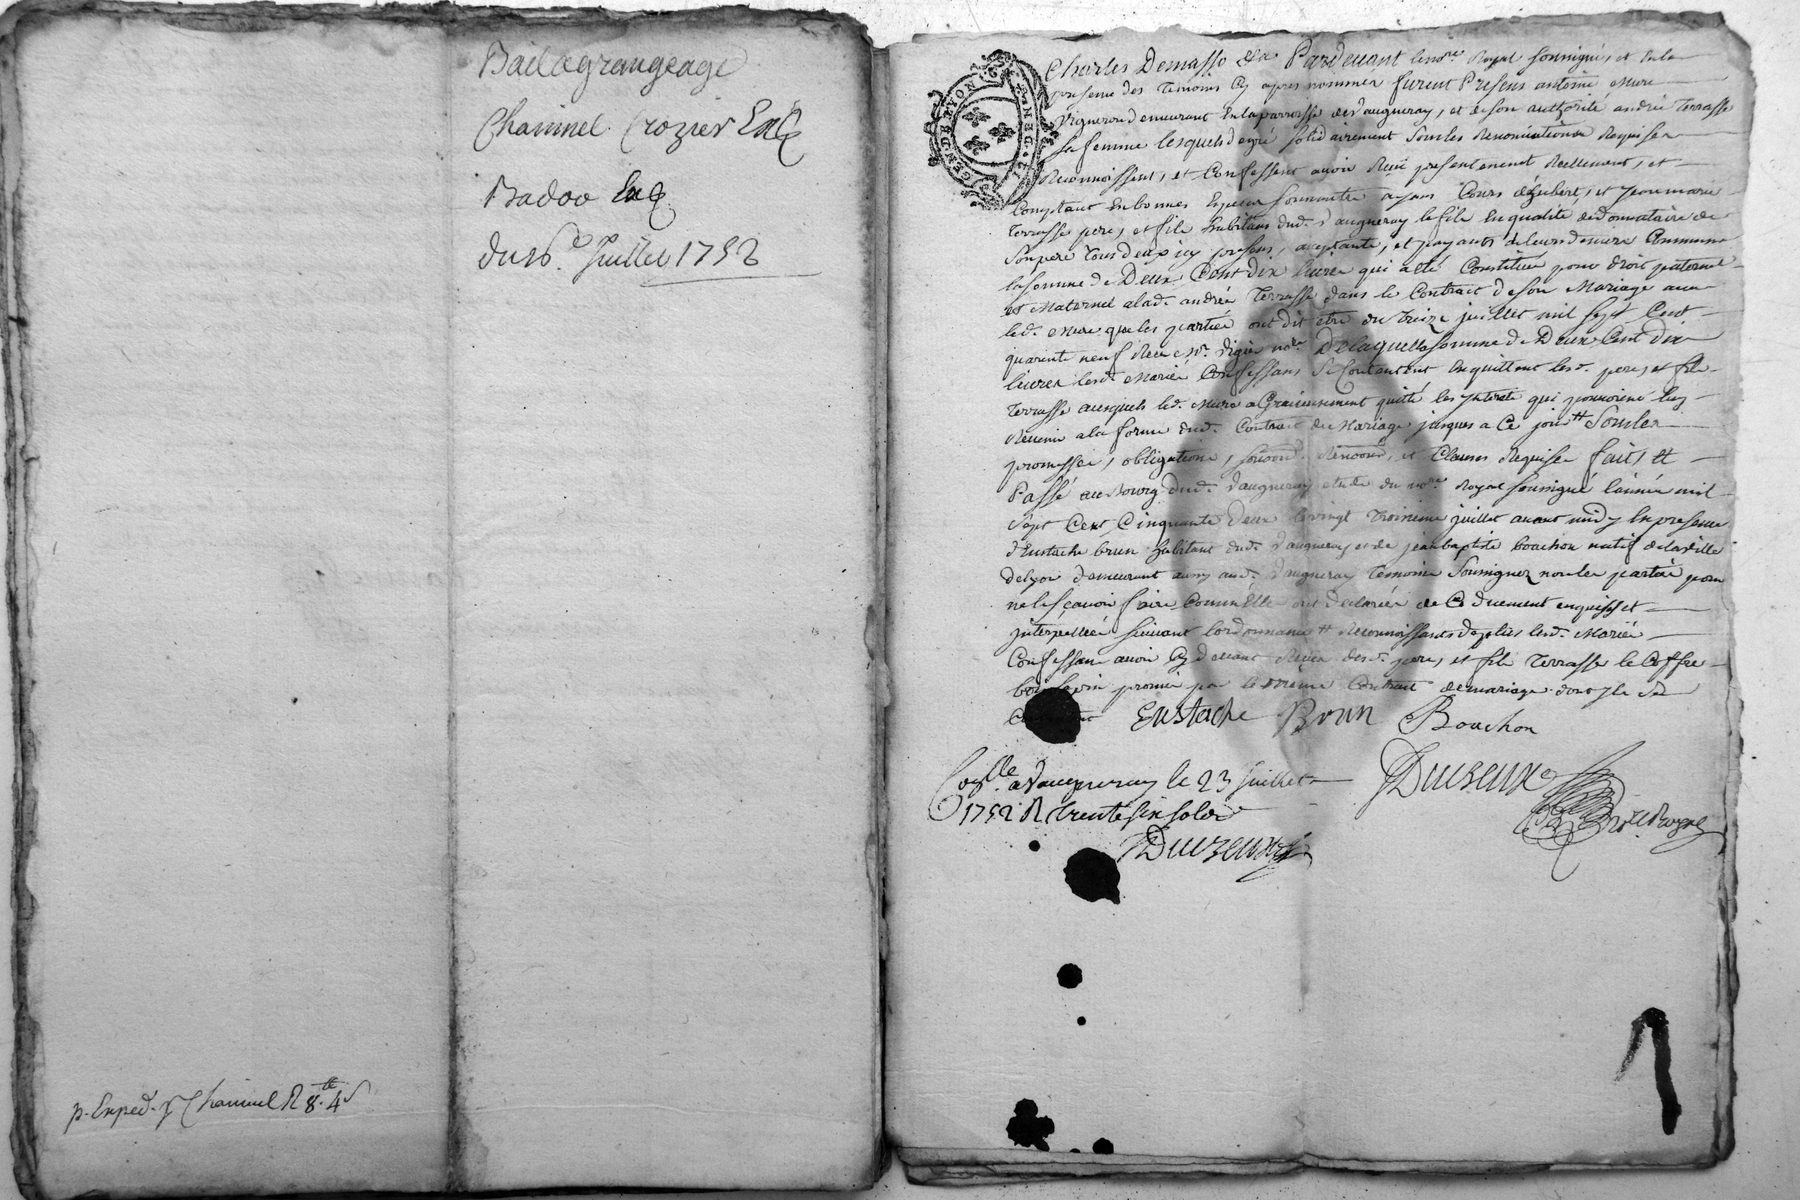 Bail a grangeage
Chaninel Crozier Exp
Badoo Exp
du 16e Juillet 1752
p. Exped. p Chaninel R 8tt 4s
GEN DE LYON
Charles Demasso &a Pardevant le nore Royal soussigné, et en la
presence des temoins Cy apres nommes furent Presens antoine Mure
Vigneron demeurant En la parroisse de Vaugneray, et de son authorité andrée Terrasse
sa femme lesquels de gré solidairement sous les Renonciations Requises
Reconnoissent, et Confessent avoir Reçu presentement Reellement, et
Comptant En bonnes Especes sonnantes ayans Cours d'hubert, et jean marie
Terrasse pere, et fils habitans dud. Vaugneray le fils En qualité de donnataire de
son pere tous deux icy presens, acceptants, et payants de leurs deniers Communs
la somme de Deux Cent dix livres qui a eté Constituée pour droit paternel
et Maternel a lad. andrée Terrasse dans le Contrat de son Mariage avec
led. Mure que les parties ont dit etre du treize juillet mil sept Cent
quarente neuf Reçu Me Digue nore De laquelle somme de Deux Cent dix
livres lesd. Mariés Confessans se Contentent En quittent lesd. pere, et fils
Terrasse ausquels led. Mure a Gratieusement quitté les jnterets qui pouvoient luy
Revenir a la forme dud. Contrat de Mariage jusques a Ce jour tt Sous les
promesses, obligations, soumons. Renoons, et Clauses Requises fait, et
Passé au Bourg dud. Vaugneray etude du nore Royal soussigné l'année mil
sept Cent Cinquante deux le vingt troisieme juillet avant midy En presence
d'Eustache brun habitant dud. Vaugneray et de jean baptiste bouchon natif de la ville
de lyon demeurant aussy aud. Vaugneray temoins soussignez non les parties pour
ne le sçavoir faire Comme Elles ont declarées de Ce duement enquises et
jnterpellées suivant l'ordonnance tt Reconnoissants de plus lesd. Mariés
Confessans avoir Cy devant Reçu desd. pere, et fils Terrasse le Coffre
bois sapin promis par le meme Contrat de mariage dont jls se
Contentent Eustache Brun Bouchon
Conlle a Vaugneray le 23 juillet
1752 R trente six sols